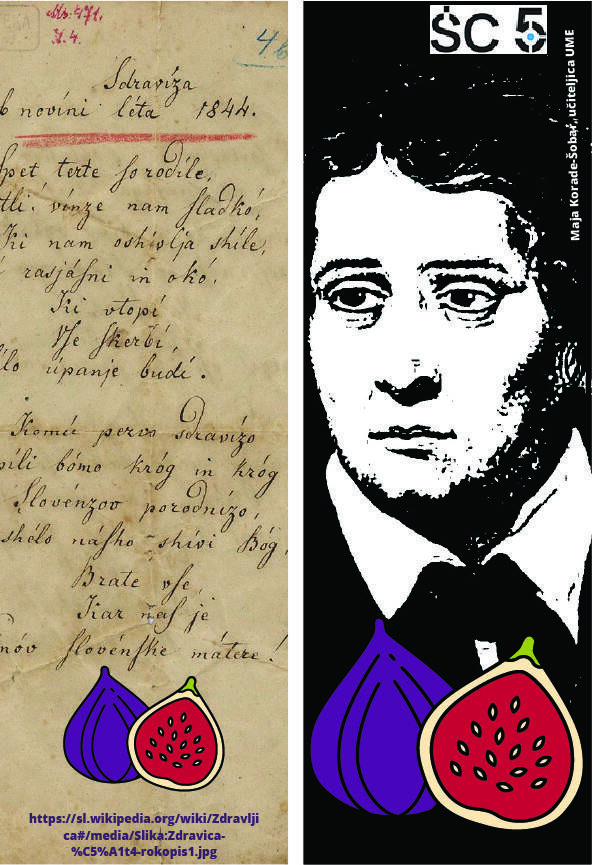 Ms. 471.
4b
Sdravíza
b noviní léta 1844.
pet terte ſo rodíle,
tli! vínze nam ſladkó,
Ki nam oshivlja shíle,
rasjáſni in okó,
Ki vtopí
Vſe ſkerbí,
lo úpanje budí.
Komú pervo sdravízo
pili bómo króg in króg
Slovénzov porodnízo,
shélo náſho shivi Bóg,
Brate vſe,
Kar naſ je
nóv ſlovénſke mátere!
https://sl.wikipedia.org/wiki/Zdravlji
ca#/media/Slika:Zdravica-
%C5%A1t4-rokopis1.jpg
ŠC 5
Maja Korade-Šobar, učiteljica UME